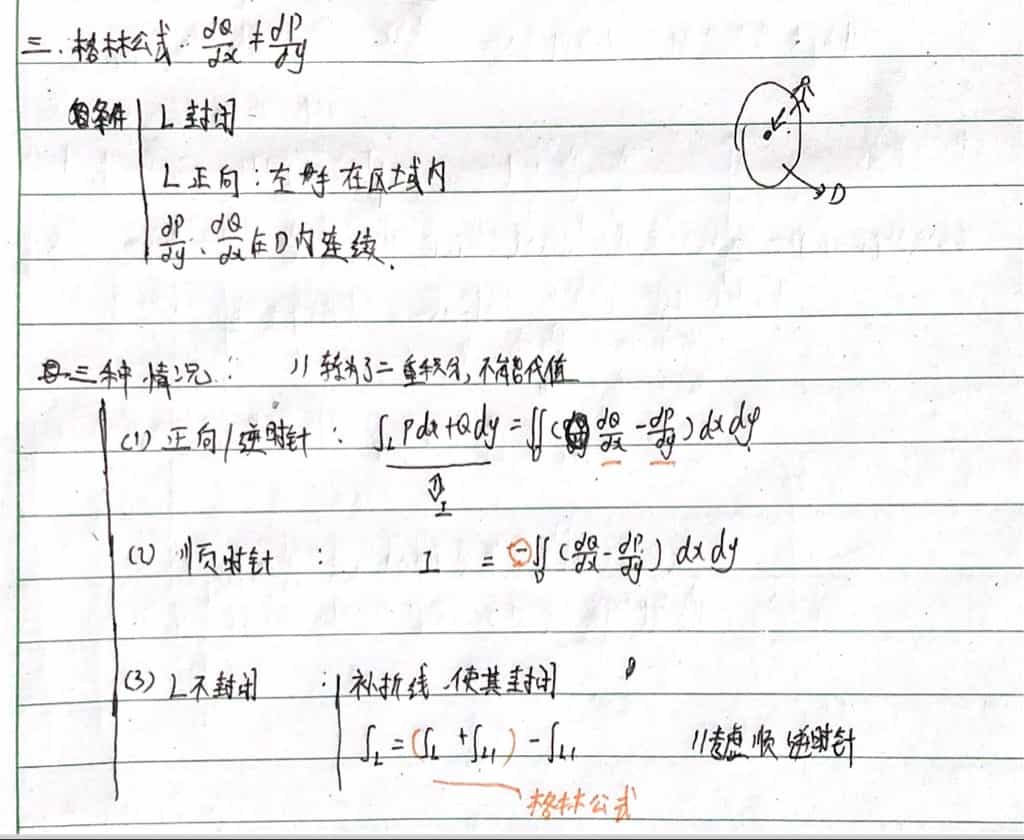 三. 格林公式. ∂Q/∂x ≠ ∂P/∂y
条件 L 封闭
L 正向: 左手在区域内
∂P/∂y . ∂Q/∂x 在D内连续.
D
三种情况: // 转为了二重积分, 不能代值
(1) 正向/逆时针 : ∫_L Pdx+Qdy = ∬_D (∂Q/∂x - ∂P/∂y) dx dy
I
(2) 顺时针 : I = -∬_D (∂Q/∂x - ∂P/∂y) dx dy
(3) L 不封闭 : 补折线 使其封闭
∫_L = (∫_L + ∫_L1) - ∫_L1 // 考虑 顺 逆时针
格林公式